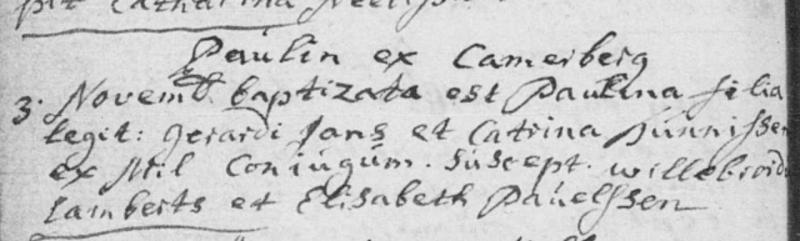 pit Catharina Neelss
Paulin ex Camerberg
3. Novemb. baptizata est Paulina filia
legit: Gerardi Jans et Catrina Hunnissen
ex Mil Coniugum. suscept. willebrord
Lamberts et Elisabeth Pauelssen